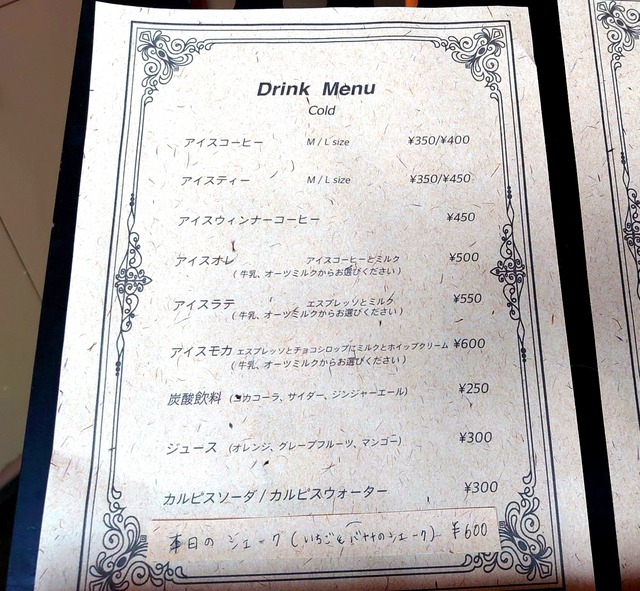 Drink Menu
Cold
アイスコーヒー M / L size ¥350/¥400
アイスティー M / L size ¥350/¥450
アイスウィンナーコーヒー ¥450
アイスオレ アイスコーヒーとミルク ¥500
( 牛乳、オーツミルクからお選びください )
アイスラテ エスプレッソとミルク ¥550
( 牛乳、オーツミルクからお選びください )
アイスモカ エスプレッソとチョコシロップにミルクとホイップクリーム ¥600
( 牛乳、オーツミルクからお選びください )
炭酸飲料 (コカコーラ、サイダー、ジンジャーエール) ¥250
ジュース (オレンジ、グレープフルーツ、マンゴー) ¥300
カルピスソーダ / カルピスウォーター ¥300
本日の シェーク (いちごとバナナのシェーク) ¥600